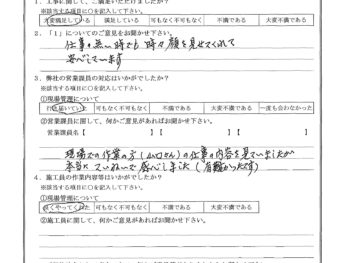 1. 工事に関して、ご満足いただけましたか？
※該当する項目に○を記入して下さい。
大変満足している 満足している 可もなく不可もなく 不満である 大変不満である
2. 「1」についてのご意見をお聞かせ下さい。
仕事の無い時でも 時々顔を見せてくれて
安心しています
3. 弊社の営業課員の対応はいかがでしたか？
※該当する項目に○を記入して下さい。
①現場管理について
行き届いていた 可もなく不可もなく 不満である 大変不満である 一度も会わなかった
②営業課員に関して、何かご意見があればお聞かせ下さい。
営業課員名【 】【 】【 】
現場での作業の方（山口さん）の仕事の内容を見ていましたが
本当に ていねいで 感心しました（有難かったです）
4. 施工員の作業内容等はいかがでしたか？
※該当する項目に○を記入して下さい。
①現場管理について
良くやってくれた 可もなく不可もなく 不満である 大変不満である
②施工員に関して、何かご意見があればお聞かせ下さい。